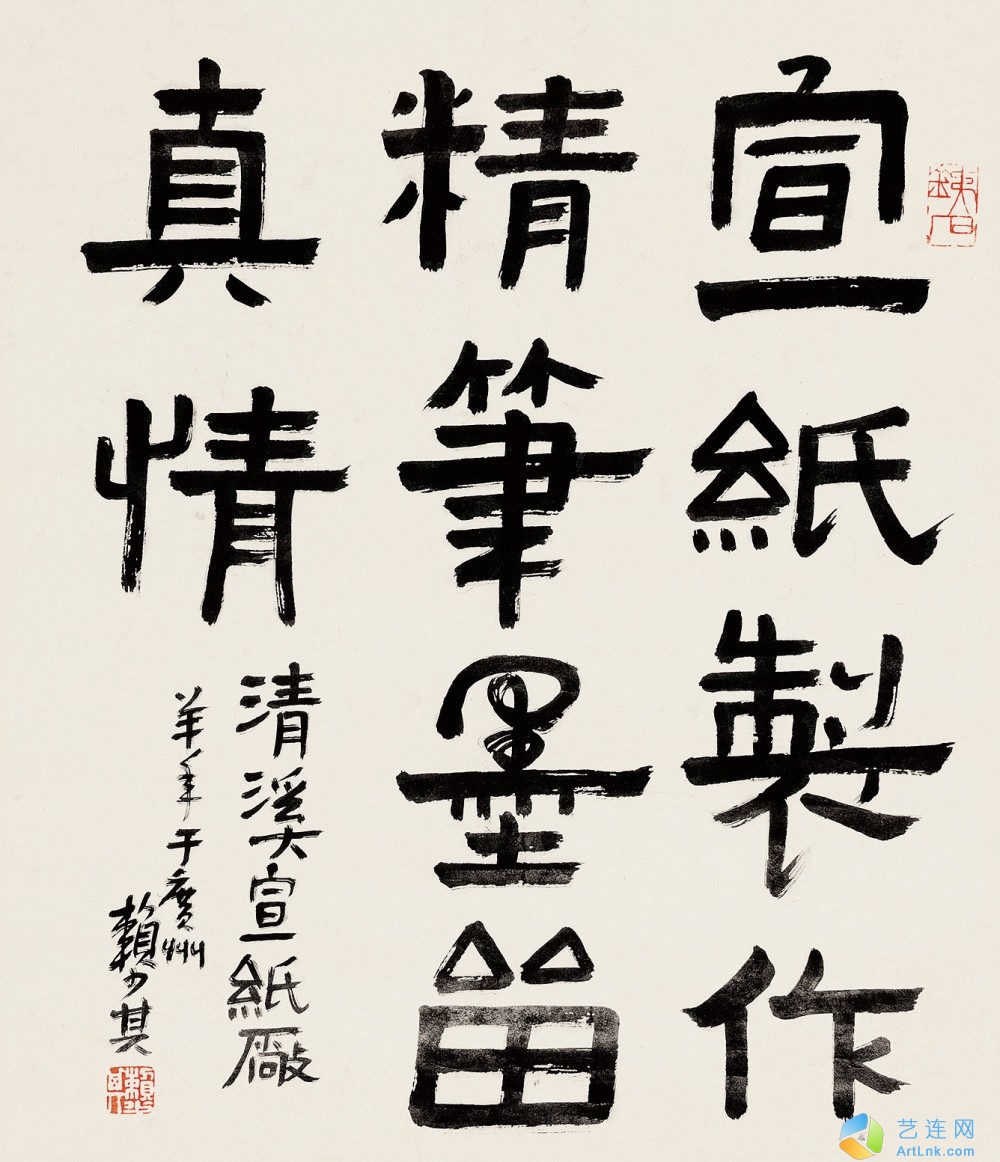 宣紙製作
精筆墨畱
真情
清溪宣紙廠
羊年于廣州
賴少其
鐵石
艺连网
ArtLnk.com